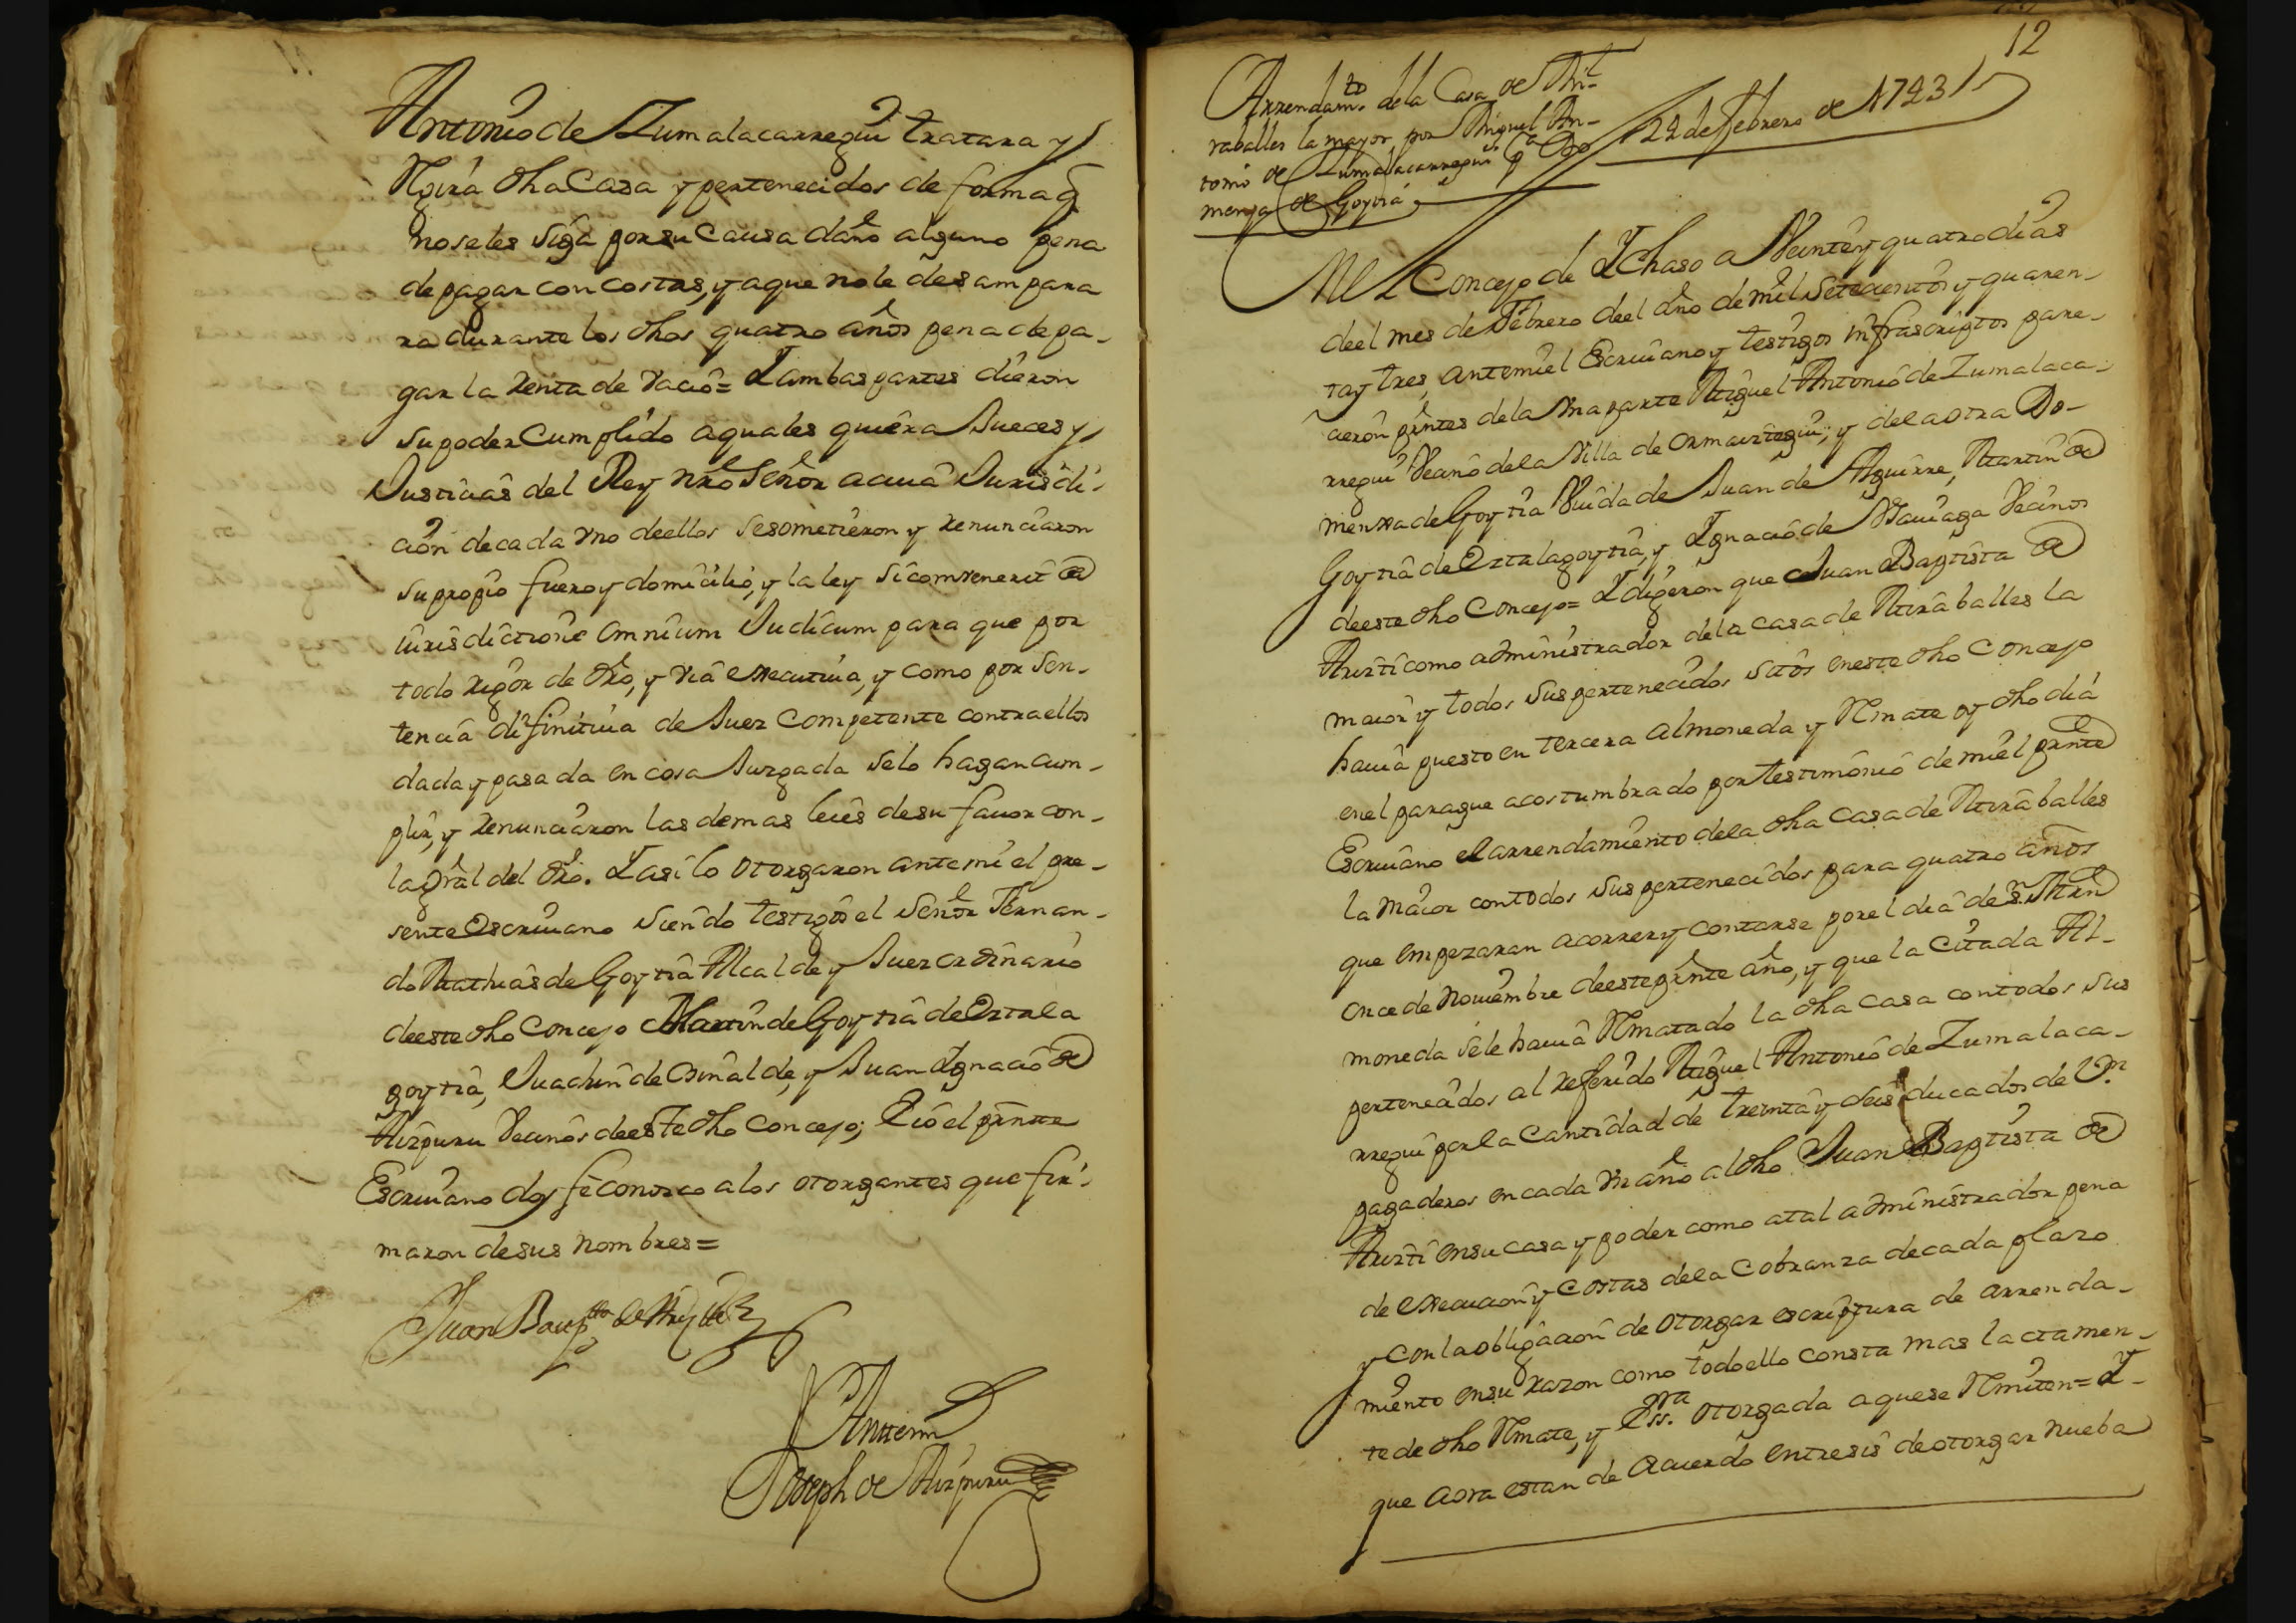 Antonio de Zumalacarregui tratara y
Regira dha Casa y pertenecidos de forma q̃
no se les siga por su Causa daño alguno pena
de pagar con costas, y a que no le desampara
ra durante los dhos quatro años pena de pa-
gar la Renta de vacio = Y ambas partes dieron
su poder Cumplido a quales quiera Jueces y
Justicias del Rey nr̃o Señor a cuia Jurisdi-
cion de cada vno de ellos se sometieron y renunciaron
su propio fuero y domicilio, y la ley si combenerit de
iurisdictione omnium Judicum para que por
todo rigor de dr̃o, y via executiua, y como por sen-
tencia difinitiua de Juez Competente contra ellos
dada y pasada en cosa Juzgada se lo hagan cum-
plir, y renunciaron las demas leies de su fauor con-
la gr̃al del dr̃o. Y asi lo otorgaron ante mi el pre-
sente Escriuano siendo testigos el Señor Fernan-
do Mathias de Goytia Alcalde y Juez ordinario
de este dho Concejo Martin de Goytia de Ertala
goytia, Juachin de Osinalde, y Juan Ignacio de
Aizpuru Vecinos de este dho Concejo; E io el prñte
Escriuano doy fe conozco a los otorgantes que fir-
maron de sus nombres =
Juan Bauptta de
Antemi
Joseph de Aizpuru
12
Arrendamto de la Casa de Mi-
raballes la mayor, por Miguel An-
tonio de Zumalacarregui Pa Do-
menja de Goytia
24 de Febrero de 1743
En el Concejo de Ychaso a Veinte y quatro dias
de el mes de Febrero de el año de mil setecientos y quaren-
ta y tres, ante mi el Escriuano y testigos infrascriptos pare-
cieron prñtes de la vna parte Miguel Antonio de Zumalaca-
rregui Vecino de la Villa de Ormaiztegui; y de la otra Do-
menxa de Goytia Viuda de Juan de Aguirre, Martin de
Goytia de Ertalagoytia, y Ygnacio de Vecinos
de este dho Concejo = Y digeron que Juan Baptista de
como administrador de la casa de Miraballes la
maior y todos sus pertenecidos sitos en este dho Concejo
hauia puesto en tercera almoneda y Remate oy dho dia
en el parague acostumbrado por testimonio de mi el prñte
Escriuano el arrendamiento de la dha Casa de Miraballes
la maior con todos sus pertenecidos para quatro años
que empezaran a correr y contarse por el dia de Sn Mrn
once de Nouiembre de este prñte año, y que la citada Al-
moneda se le hauia Rematado la dha casa con todos sus
pertenecidos al referido Miguel Antonio de Zumalaca-
rregui por la Cantidad de treinta y seis ducados de Vn
pagaderos en cada vn año al dho Juan Baptista de
en su casa y poder como a tal administrador pena
de execucion y costas de la Cobranza de cada plazo
y con la obligacion de otorgar escriptura de arrenda-
miento en su razon como todo ello consta mas lactamen-
te de dho Remate, y Essra otorgada a que se Remiten = Y
que aora estan de acuerdo entre sis de otorgar nueba